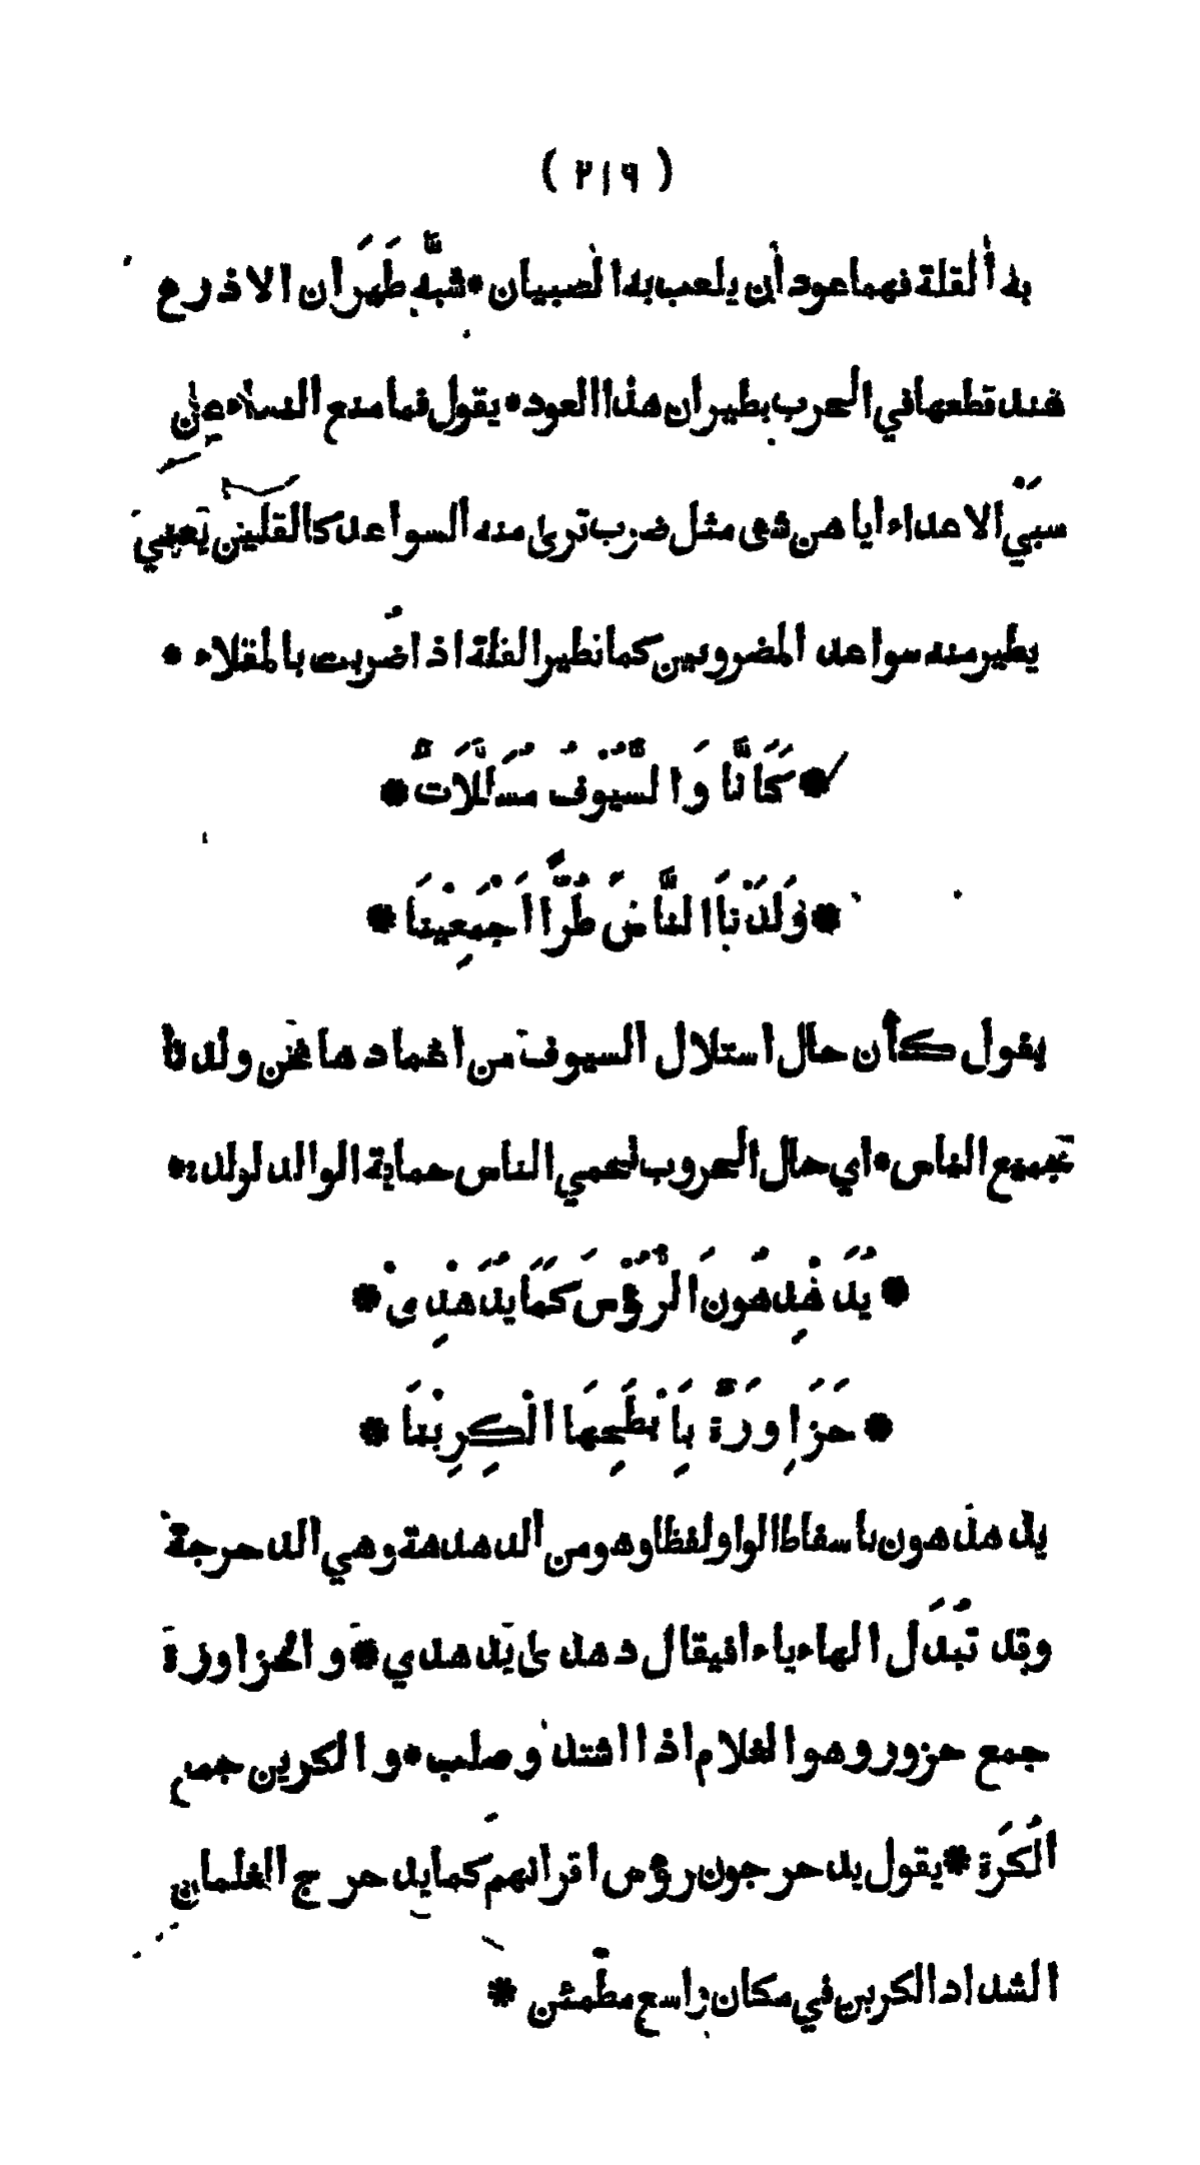 ( ٢١٩ )
به ألقلة فهما عودان يلعب به الصبيان * شبَّه طَيَران الاذرع
عند قطعها في الحرب بطيران هذا العود * يقول فما منع النساء عن
سبَي الاعداء ايا هن شي مثل ضرب ترى منه السواعد كالقلين يَعني
يطير منه سواعد المضروبين كما تطير القلة اذا ضُربت بالمقلاء *
* كَاَنَّا وَالسُّيُوْفُ مُسَلَّلَاتٌ *
* وَلَدْنَا النَّاسَ طُرًّا اَجْمَعِيْنَا *
يقول كأن حال استلال السيوف من اغمادها نحن ولدنا
جميع الناس * اي حال الحروب نحمي الناس حماية الوالد لولده *
* يُدَهْدِهُونَ الرُّؤُسَ كَمَا يُدَهْدِىْ *
* حَزَاوِرَةٌ بِاَبْطَحِهَا الْكِرِيْنَا *
يدهدهون باسقاط الواو لفظا وهو من الدهدهة وهي الدحرجة
وقد تُبَدل الهاء ياءا فيقال دهدى يدهدي * والحزاورة
جمع حزور وهو الغلام اذا اشتد وصلب * والكرين جمع
الكُرَة * يقول يدحرجون رؤس اقرانهم كما يدحرج الغلمان
الشداد الكرين في مكان واسع مطمئن *